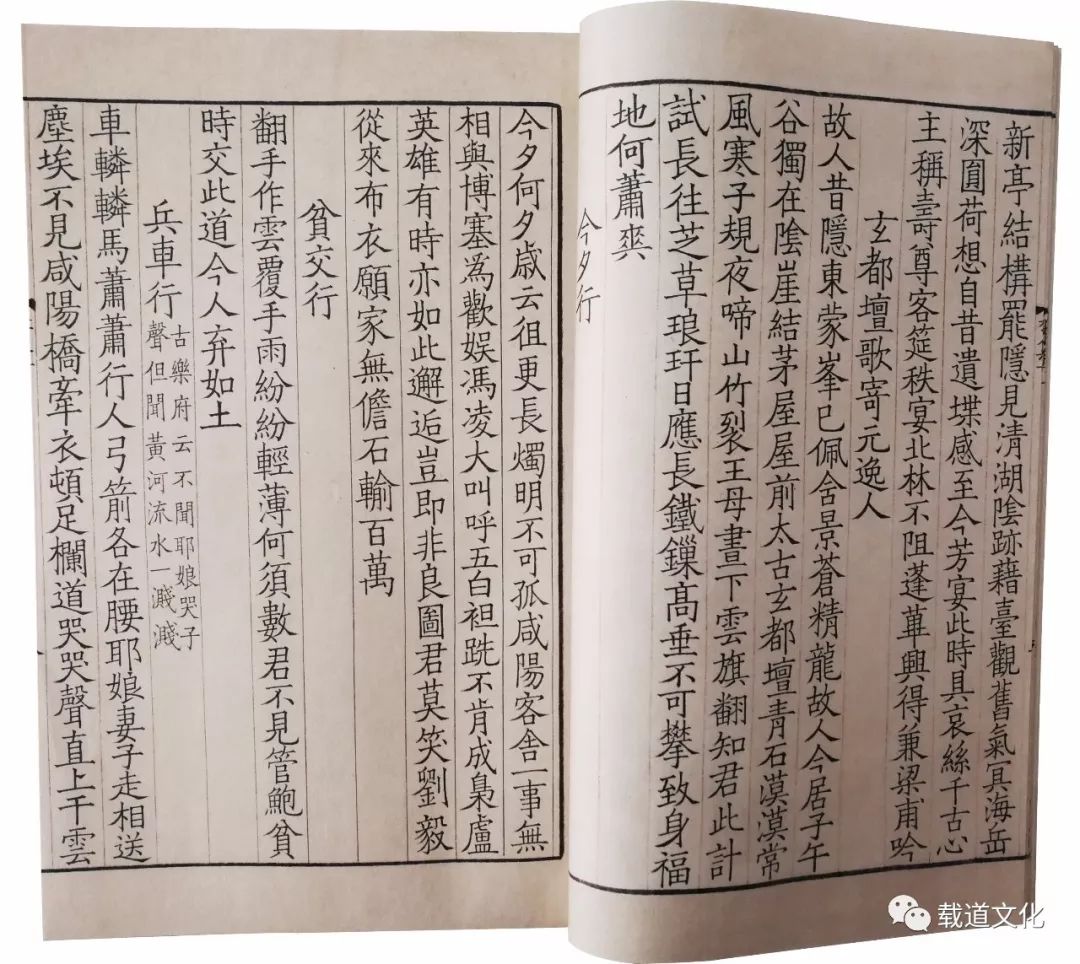 新亭結構罷隱見清湖陰跡藉臺觀舊氣冥海岳
深圓荷想自昔遺堞感至今芳宴此時具哀絲千古心
主稱壽尊客筵秩宴北林不阻蓬蓽興得兼梁甫吟
玄都壇歌寄元逸人
故人昔隱東蒙峯已佩含景蒼精龍故人今居子午
谷獨在陰崖結茅屋屋前太古玄都壇青石漠漠常
風寒子規夜啼山竹裂王母晝下雲旗翻知君此計
試長往芝草琅玕日應長鐵鏁高垂不可攀致身福
地何蕭爽
今夕行
今夕何夕歲云徂更長燭明不可孤咸陽客舍一事無
相與博塞為歡娛馮凌大叫呼五白袒跣不肯成梟盧
英雄有時亦如此邂逅豈即非良圖君莫笑劉毅
從來布衣願家無儋石輸百萬
貧交行
翻手作雲覆手雨紛紛輕薄何須數君不見管鮑貧
時交此道今人弃如土
兵車行
古樂府云不聞耶娘哭子
聲但聞黃河流水一濺濺
車轔轔馬蕭蕭行人弓箭各在腰耶娘妻子走相送
塵埃不見咸陽橋牽衣頓足欄道哭哭聲直上干雲
载道文化